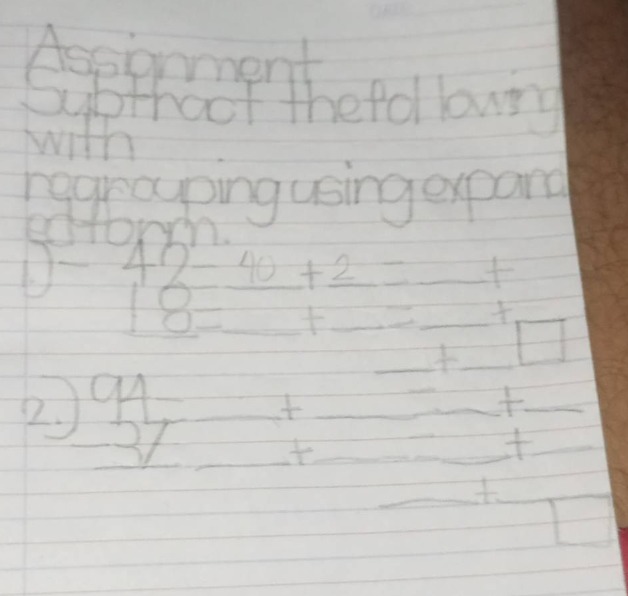 Assignment
Subthact the following
with
regrouping using expand
ed form.
1.) - 42 = 40 + 2 = ___ +
18 = ___ + ___ = ___ +
___ + ___ □
2.) 94 ___ + ___ = ___ + ___
- 37 ___ + ___ = ___ + ___
___ + ___ □